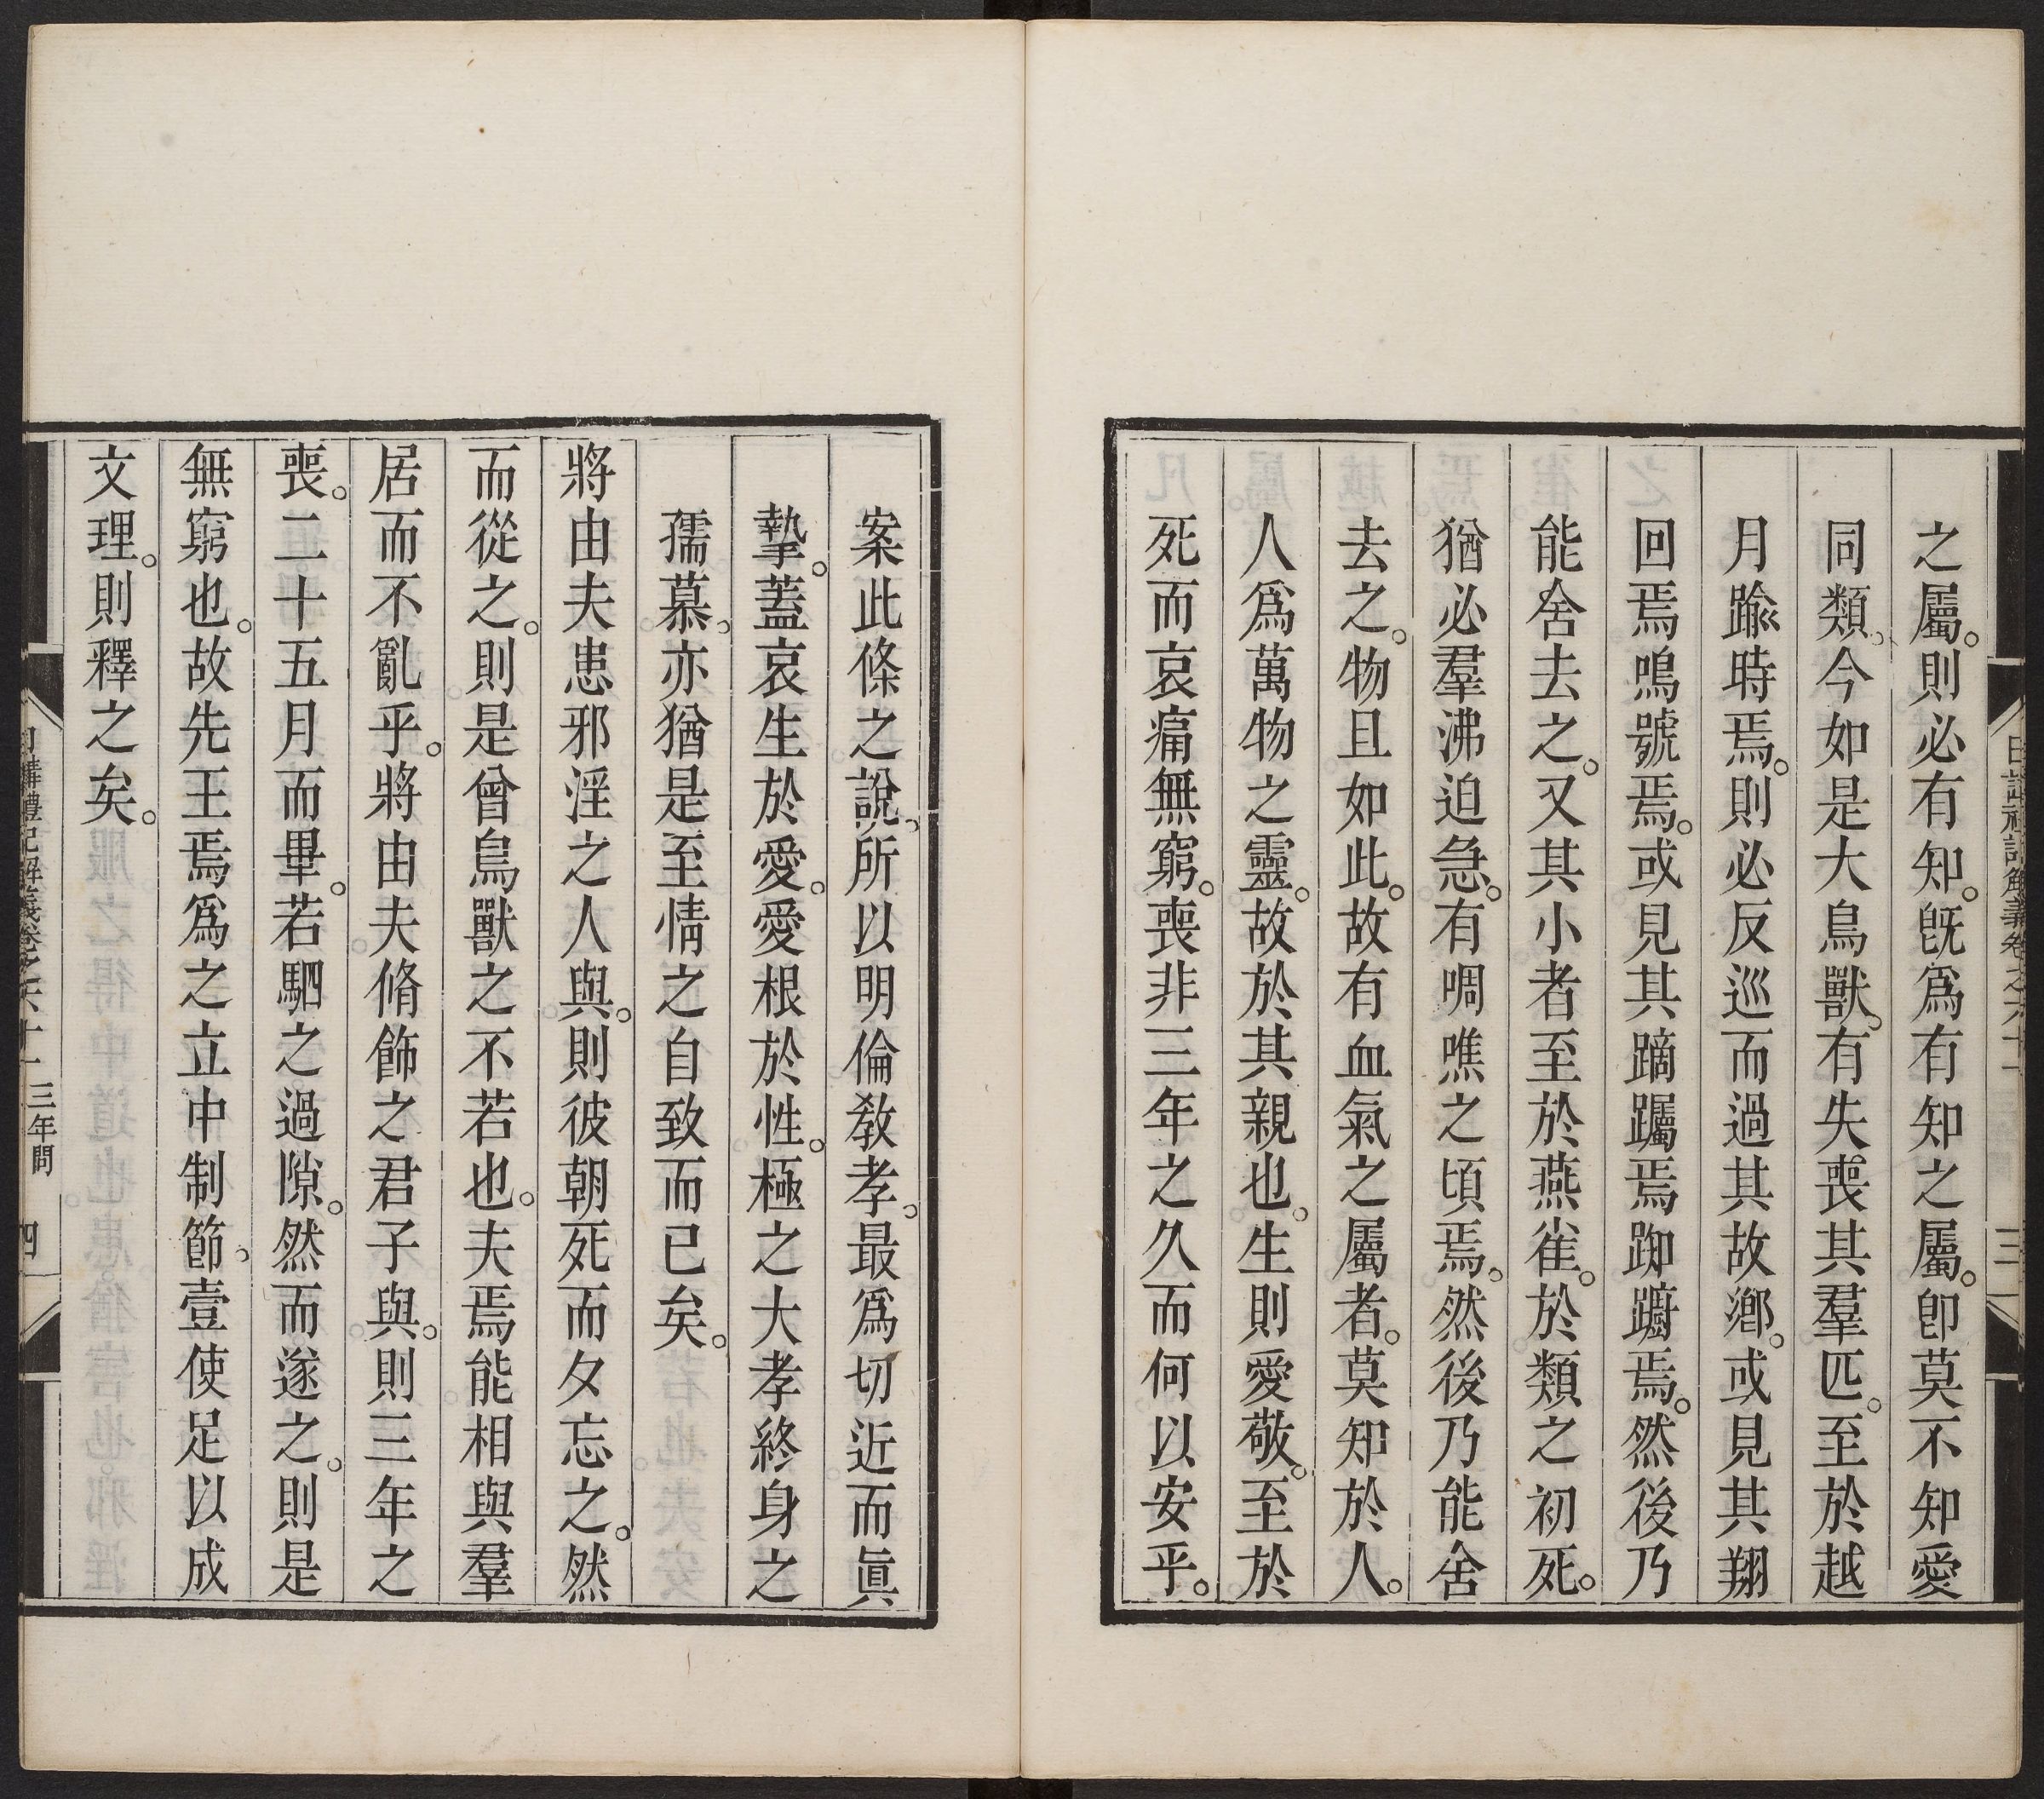 之屬。則必有知。旣爲有知之屬。卽莫不知愛
同類。今如是大鳥獸。有失喪其羣匹。至於越
月踰時焉。則必反巡而過其故鄕。或見其翔
回焉鳴號焉。或見其蹢躅焉踟躕焉。然後乃
能舍去之。又其小者至於燕雀。於類之初死。
猶必羣沸迫急。有啁噍之頃焉。然後乃能舍
去之。物且如此。故有血氣之屬者。莫知於人。
人爲萬物之靈。故於其親也。生則愛敬。至於
死而哀痛無窮。喪非三年之久而何以安乎。
日講禮記解義卷之六十一 三
案此條之說。所以明倫敎孝。最爲切近而眞
摯。蓋哀生於愛。愛根於性。極之大孝終身之
孺慕。亦猶是至情之自致而已矣。
將由夫患邪淫之人與。則彼朝死而夕忘之。然
而從之。則是曾鳥獸之不若也。夫焉能相與羣
居而不亂乎。將由夫脩飾之君子與。則三年之
喪。二十五月而畢。若駟之過隙。然而遂之。則是
無窮也。故先王焉爲之立中制節。壹使足以成
文理。則釋之矣。
日講禮記解義卷之六十一 三年問 四